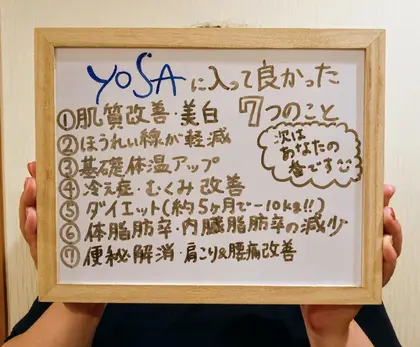 YOSAに入って良かった
7つのこと
①肌質改善・美白
②ほうれい線が軽減
③基礎体温アップ
④冷え症・むくみ改善
⑤ダイエット(約5ヶ月で-10kg!!)
⑥体脂肪率・内臓脂肪率の減少
⑦便秘解消・肩こり&腰痛改善
次は
あなたの
番です